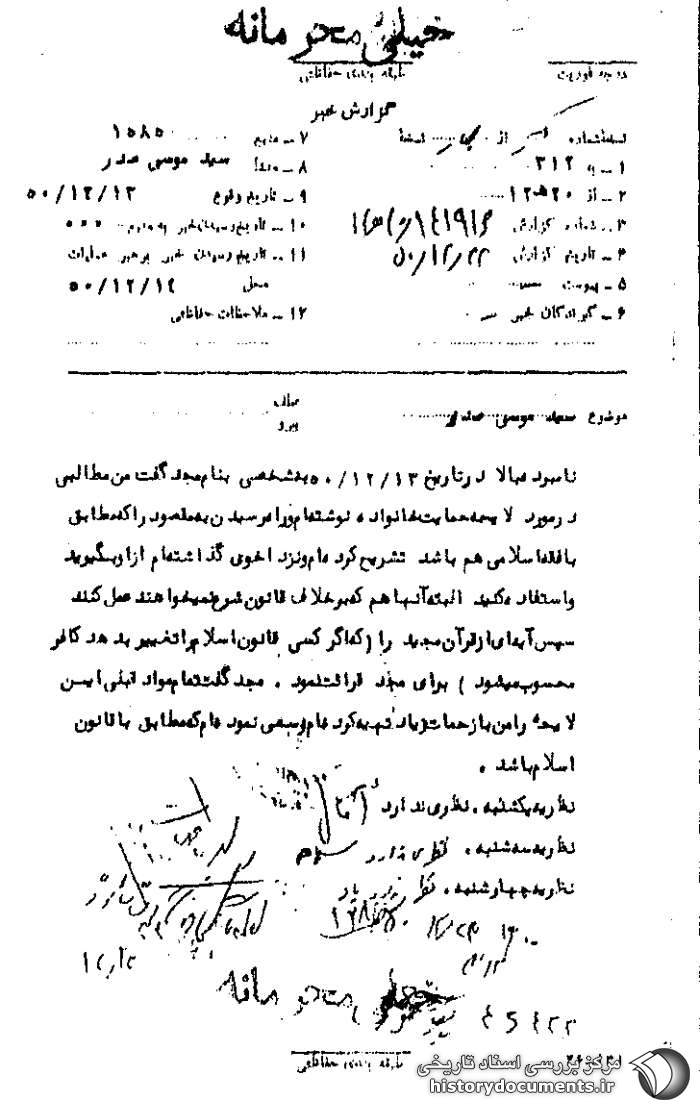 خیلی محرمانه
درجه فوریت
طبقه بندی حفاظتی
گزارش خبر
نسخه شماره از نسخه
۱ ـ به ۳۱۲
۲ ـ از ۲۰ ه ۱۲
۳ ـ شماره گزارش
۴ ـ تاریخ گزارش ۵۰/۱۲/۲۲
۵ ـ پیوست
۶ ـ گیرندگان خبر
۷ ـ منبع ۱۵۸۵۰
۸ ـ منشا سید موسی صدر
۹ ـ تاریخ وقوع ۵۰/۱۲/۱۳
۱۰ ـ تاریخ رسیدن خبر به منبع
۱۱ ـ تاریخ رسیدن خبر برهبر عملیات
محل ۵۰/۱۲/۱۴
۱۲ ـ ملاحظات حفاظتی
موضوع سید موسی صدر
عطف
پیرو
نامبرده بالا در تاریخ ۵۰/۱۲/۱۳ به شخصی بنام مجد گفت من مطالبی
در مورد لایحه حمایت خانواده نوشته‌ام و راه رسیدن به مقصود را که مطابق
با فقه اسلامی هم باشد تشریح کرده‌ام و نزد اخوی گذاشته‌ام از او بگیرید
و استفاده کنید البته آنها هم که بر خلاف قانون شرع نمیخواهند عمل کنند
سپس آیه‌ای از قرآن مجید را (که اگر کسی قانون اسلام را تغییر بدهد کافر
محسوب میشود) برای مجد قرائت نمود . مجد گفت تمام مواد قبلی این
لایحه را من با زحمات زیاد تهیه کرده‌ام و سعی نموده‌ام که مطابق با قانون
اسلام باشد .
نظریه یکشنبه . نظری ندارد
نظریه سه‌شنبه . نظری ندارد
نظریه چهارشنبه . نظری ندارد
خیلی محرمانه
۴۵۴۲۲
طبقه بندی حفاظتی
مرکز بررسی اسناد تاریخی
historydocuments.ir